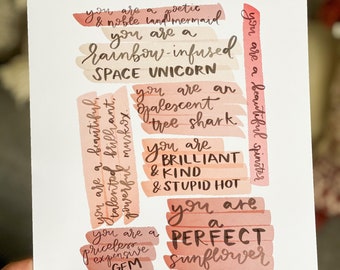 you are a poetic
& noble land mermaid
you are a
rainbow-infused
SPACE UNICORN
you are a beautiful spinster
you are an
opalescent
tree shark
you are a beautiful,
talented, brilliant,
powerful muskox
you are
BRILLIANT
& KIND
& STUPID HOT
you are a
priceless
expensive
GEM
you are
a
PERFECT
sunflower